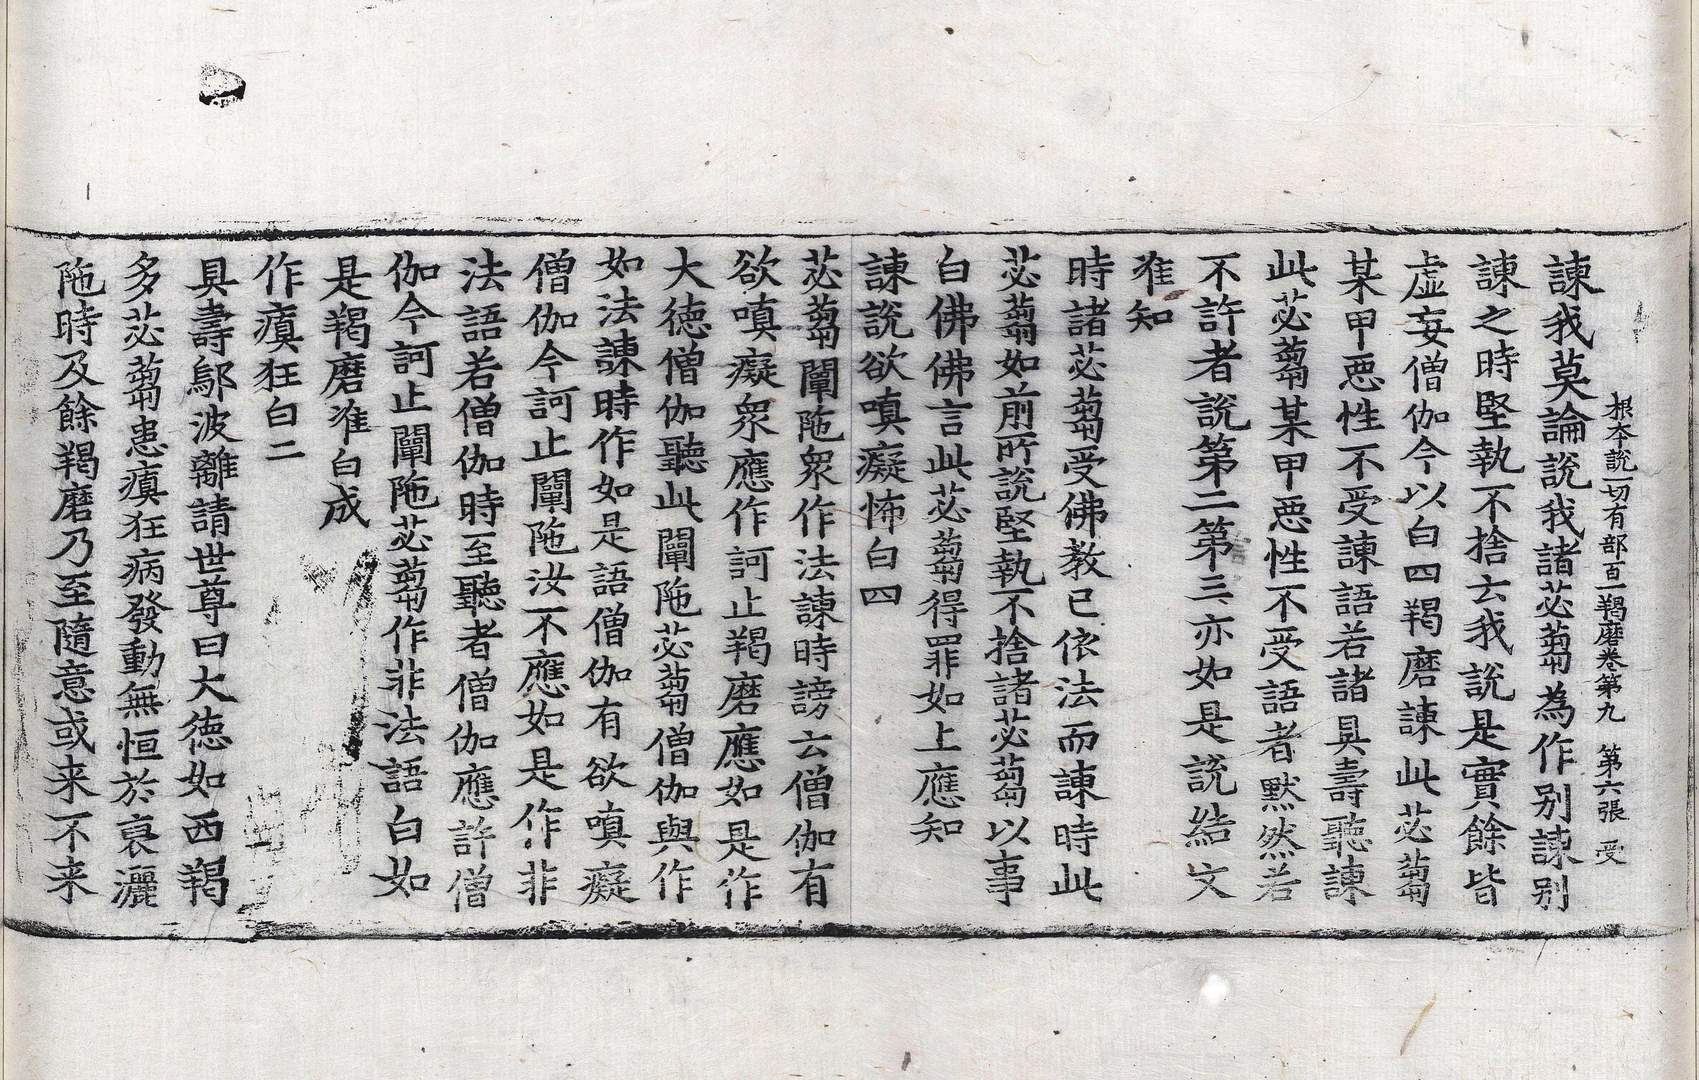 根本說一切有部百一羯磨卷第九　第六張　受
諫我莫論說我諸苾蒭為作别諫别
諫之時堅執不捨云我說是實餘皆
虛妄僧伽今以白四羯磨諫此苾蒭
某甲惡性不受諫語若諸具壽聽諫
此苾蒭某甲惡性不受語者默然若
不許者說第二第三亦如是說結文
准知
時諸苾蒭受佛教已依法而諫時此
苾蒭如前所說堅執不捨諸苾蒭以事
白佛佛言此苾蒭得罪如上應知
諫說欲嗔癡怖白四
苾蒭闡陁衆作法諫時謗云僧伽有
欲嗔癡衆應作訶止羯磨應如是作
大德僧伽聽此闡陁苾蒭僧伽與作
如法諫時作如是語僧伽有欲嗔癡
僧伽今訶止闡陁汝不應如是作非
法語若僧伽時至聽者僧伽應許僧
伽今訶止闡陁苾蒭作非法語白如
是羯磨准白成
作癲狂白二
具壽鄔波離請世尊曰大德如西羯
多苾蒭患癲狂病發動無恒於裒灑
陁時及餘羯磨乃至隨意或来不来